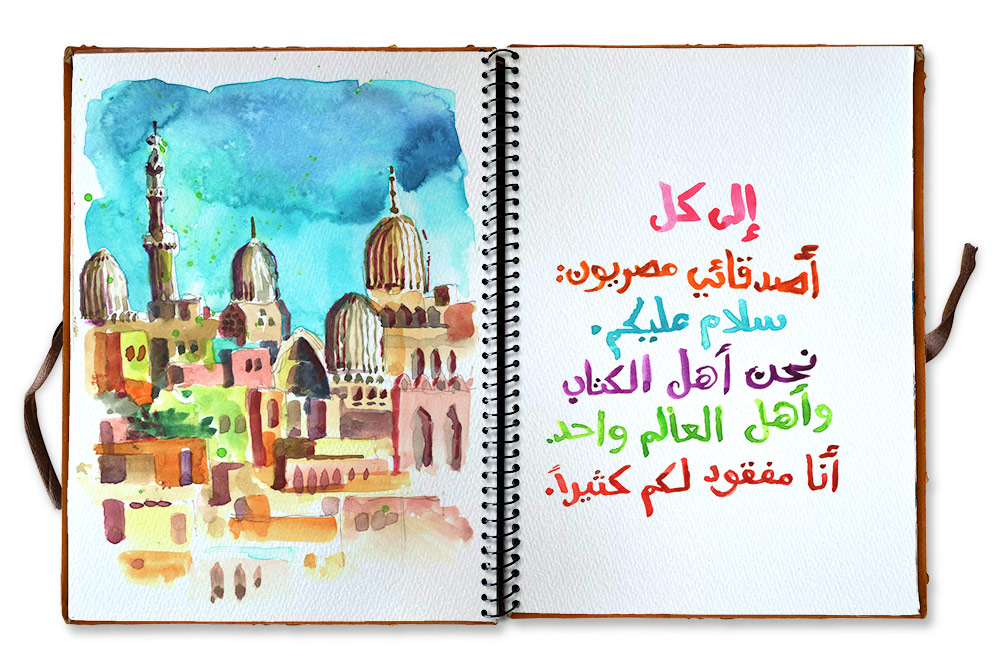 إلى كل
أصدقائي مصريون:
سلام عليكم.
نحن أهل الكتاب
وأهل العالم واحد.
أنا مفقود لكم كثيراً.